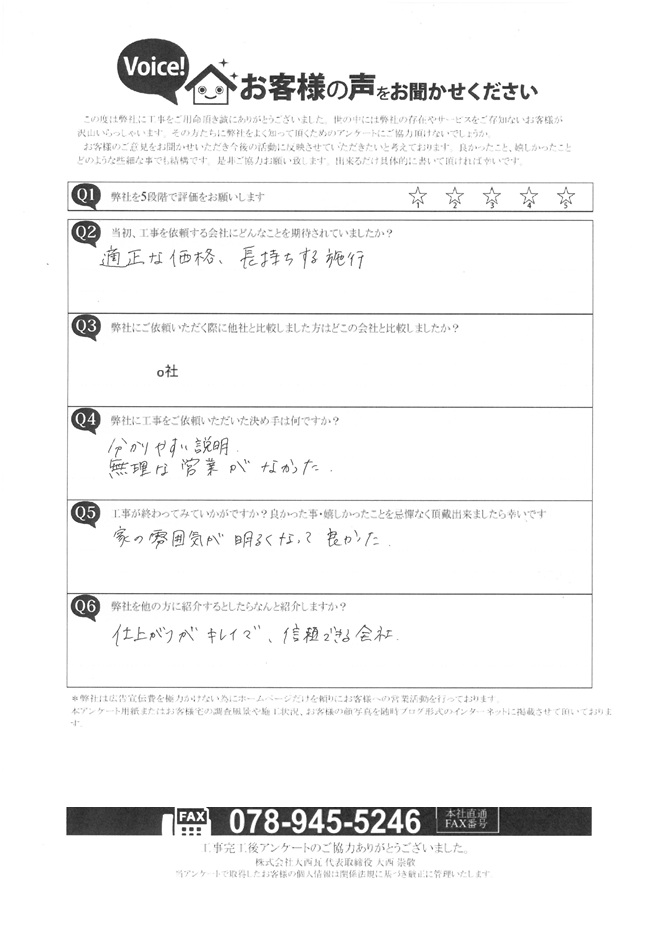 Voice!
お客様の声をお聞かせください
この度は弊社に工事をご用命頂き誠にありがとうございました。世の中には弊社の存在やサービスをご存知ないお客様が
沢山いらっしゃいます。その方たちに弊社をよく知って頂くためのアンケートにご協力頂けないでしょうか。
お客様のご意見をお聞かせいただき今後の活動に反映させていただきたいと考えております。良かったこと、嬉しかったこと
どのような些細な事でも結構です。是非ご協力お願い致します。出来るだけ具体的に書いて頂ければ幸いです。
Q1 弊社を5段階で評価をお願いします
1 2 3 4 5
Q2 当初、工事を依頼する会社にどんなことを期待されていましたか?
適正な価格、長持ちする施行
Q3 弊社にご依頼いただく際に他社と比較しました方はどこの会社と比較しましたか?
o社
Q4 弊社に工事をご依頼いただいた決め手は何ですか?
分かりやすい説明.
無理な営業がなかった.
Q5 工事が終わってみていかがですか?良かった事・嬉しかったことを忌憚なく頂戴出来ましたら幸いです
家の雰囲気が明るくなって良かった.
Q6 弊社を他の方に紹介するとしたらなんと紹介しますか?
仕上がりがキレイで、信頼できる会社.
*弊社は広告宣伝費を極力かけない為にホームページだけを頼りにお客様への営業活動を行っております。
本アンケート用紙またはお客様宅の調査風景や施工状況、お客様の顔写真を随時ブログ形式のインターネットに掲載させて頂いておりま
す。
FAX 078-945-5246 本社直通
FAX番号
工事完工後アンケートのご協力ありがとうございました。
株式会社大西瓦 代表取締役 大西 崇敬
当アンケートで取得したお客様の個人情報は関係法規に基づき厳正に管理いたします。